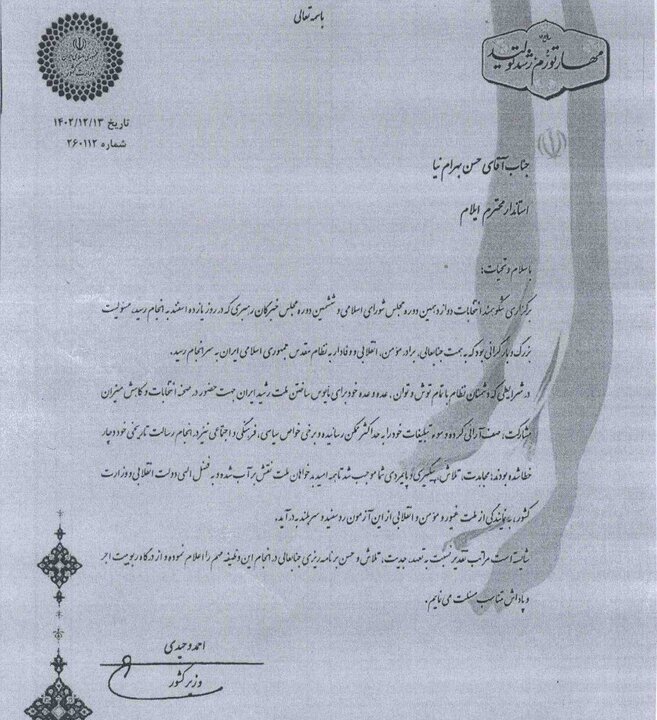 باسمه تعالی
مهار تورم، رشد تولید
تاریخ ۱۴۰۲/۱۲/۱۳
شماره ۲۶۰۱۱۲
جناب آقای حسن بهرام نیا
استاندار محترم ایلام
با سلام و تحیات؛
برگزاری شکوهمند انتخابات دوازدهمین دوره مجلس شورای اسلامی و ششمین دوره مجلس خبرگان رهبری که در روز یازده اسفند به انجام رسید، مسئولیت
بزرگ و بار گرانی بود که به همت جنابعالی، برادر مؤمن، انقلابی و وفادار به نظام مقدس جمهوری اسلامی ایران به سرانجام رسید.
در شرایطی که دشمنان نظام با تمام توش و توان، عده و عده خود برای مأیوس ساختن ملت رشید ایران جهت حضور در صحنه انتخابات و کاهش میزان
مشارکت، صف آرائی کرده و سوء تبلیغات خود را به حداکثر ممکن رسانیده و برخی خواص سیاسی، فرهنگی و اجتماعی نیز در انجام رسالت تاریخی خود دچار
خطا شده بودند؛ مجاهدت، تلاش، پیگیری و پایمردی شما موجب شد تا همه امید بدخواهان ملت نقش بر آب شده و به فضل الهی دولت انقلابی و وزارت
کشور، به نمایندگی از ملت غیور و مؤمن و انقلابی از این آزمون روسفید و سربلند به در آید.
شایسته است مراتب تقدیر نسبت به تعهد، جدیت، تلاش و حسن برنامه ریزی جنابعالی در انجام این وظیفه مهم را اعلام نموده و از درگاه ربوبیت اجر
و پاداش متناسب مسئلت می نمایم.
احمد وحیدی
وزیر کشور